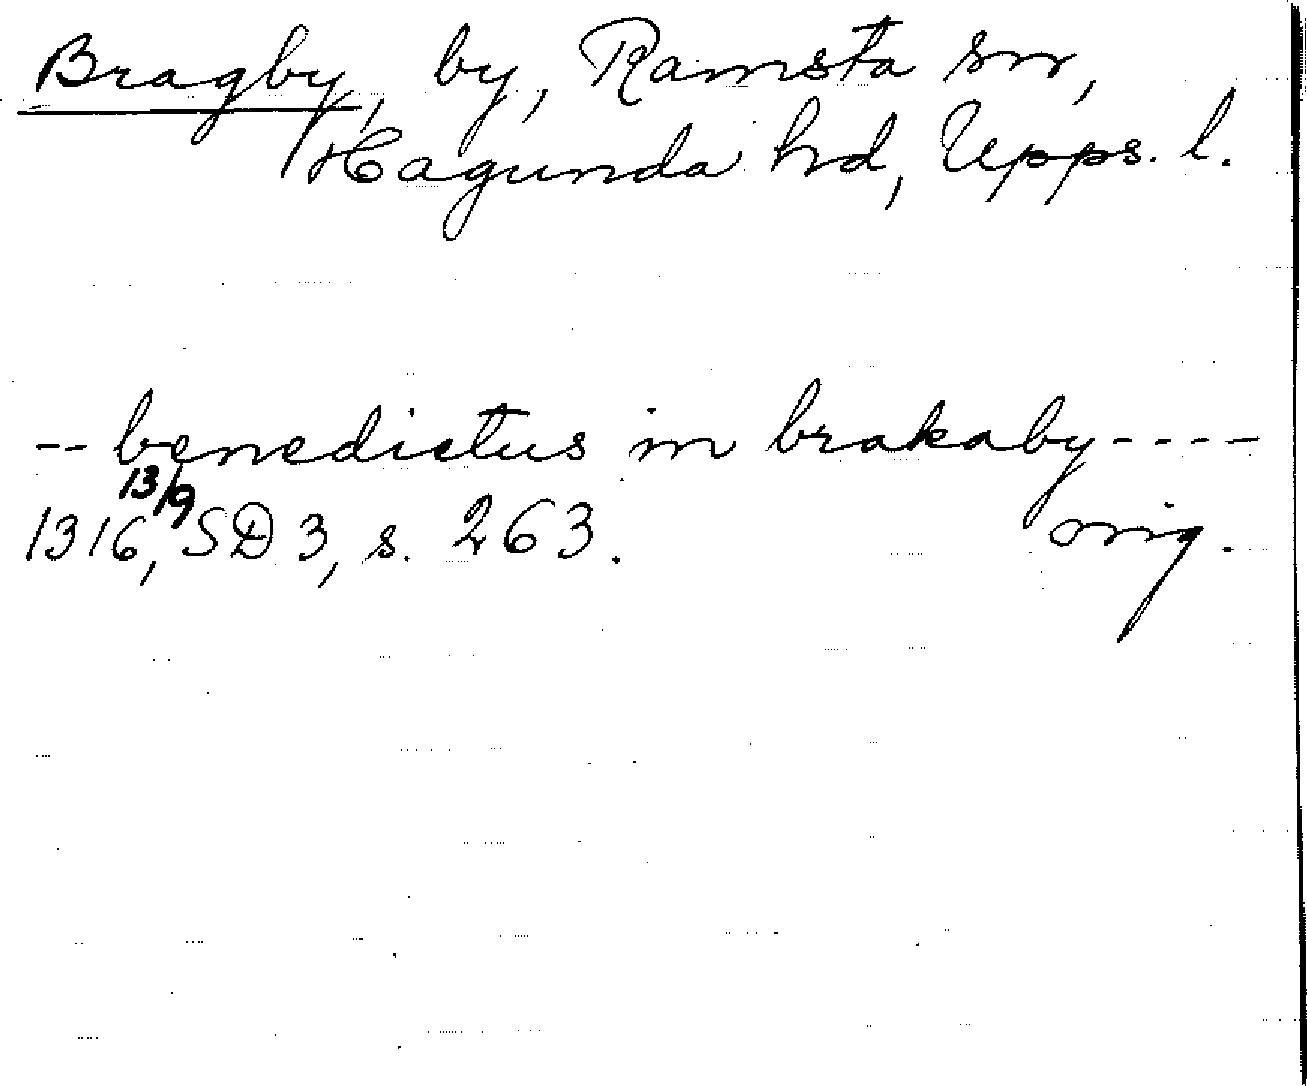 Bragby, by, Ramsta sn,
Hagunda hd, Upps. l.
-- benedictus in brakaby ----
1316, 13/9 SD 3, s. 263. orig.